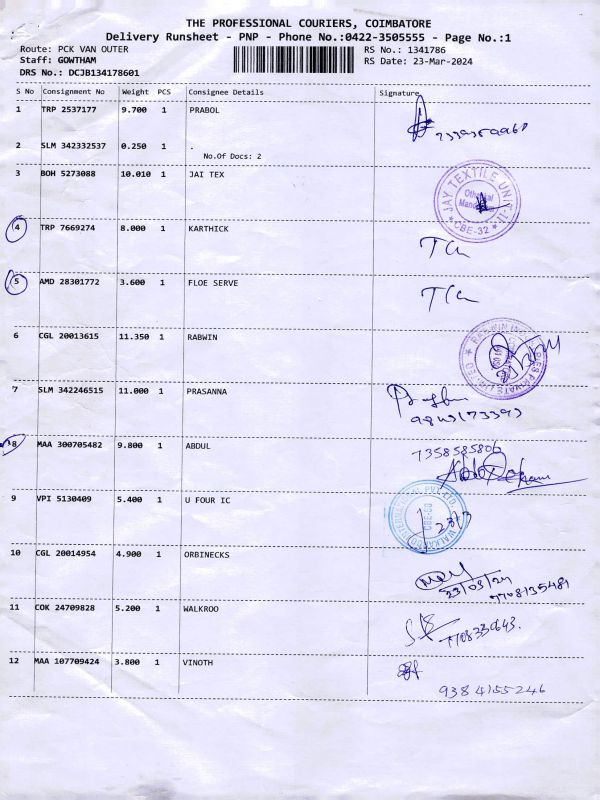 THE PROFESSIONAL COURIERS, COIMBATORE
Delivery Runsheet - PNP - Phone No.:0422-3505555 - Page No.:1
Route: PCK VAN OUTER
RS No.: 1341786
Staff: GOWTHAM
RS Date: 23-Mar-2024
DRS No.: DCJB134178601
S No Consignment No Weight PCS Consignee Details Signature
1 TRP 2537177 9.700 1 PRABOL
2 SLM 342332537 0.250 1 .
No.Of Docs: 2
3 BOH 5273088 10.010 1 JAI TEX
JAY TEXTILE UNIT-II
CBE-32
4 TRP 7669274 8.000 1 KARTHICK
5 AMD 28301772 3.600 1 FLOE SERVE
6 CGL 20013615 11.350 1 RABWIN
7 SLM 342246515 11.000 1 PRASANNA
8 MAA 300705482 9.800 1 ABDUL
7358585806
9 VPI 5130409 5.400 1 U FOUR IC
10 CGL 20014954 4.900 1 ORBINECKS
23/03/24
7708135481
11 COK 24709828 5.200 1 WALKROO
12 MAA 107709424 3.800 1 VINOTH
9384155246